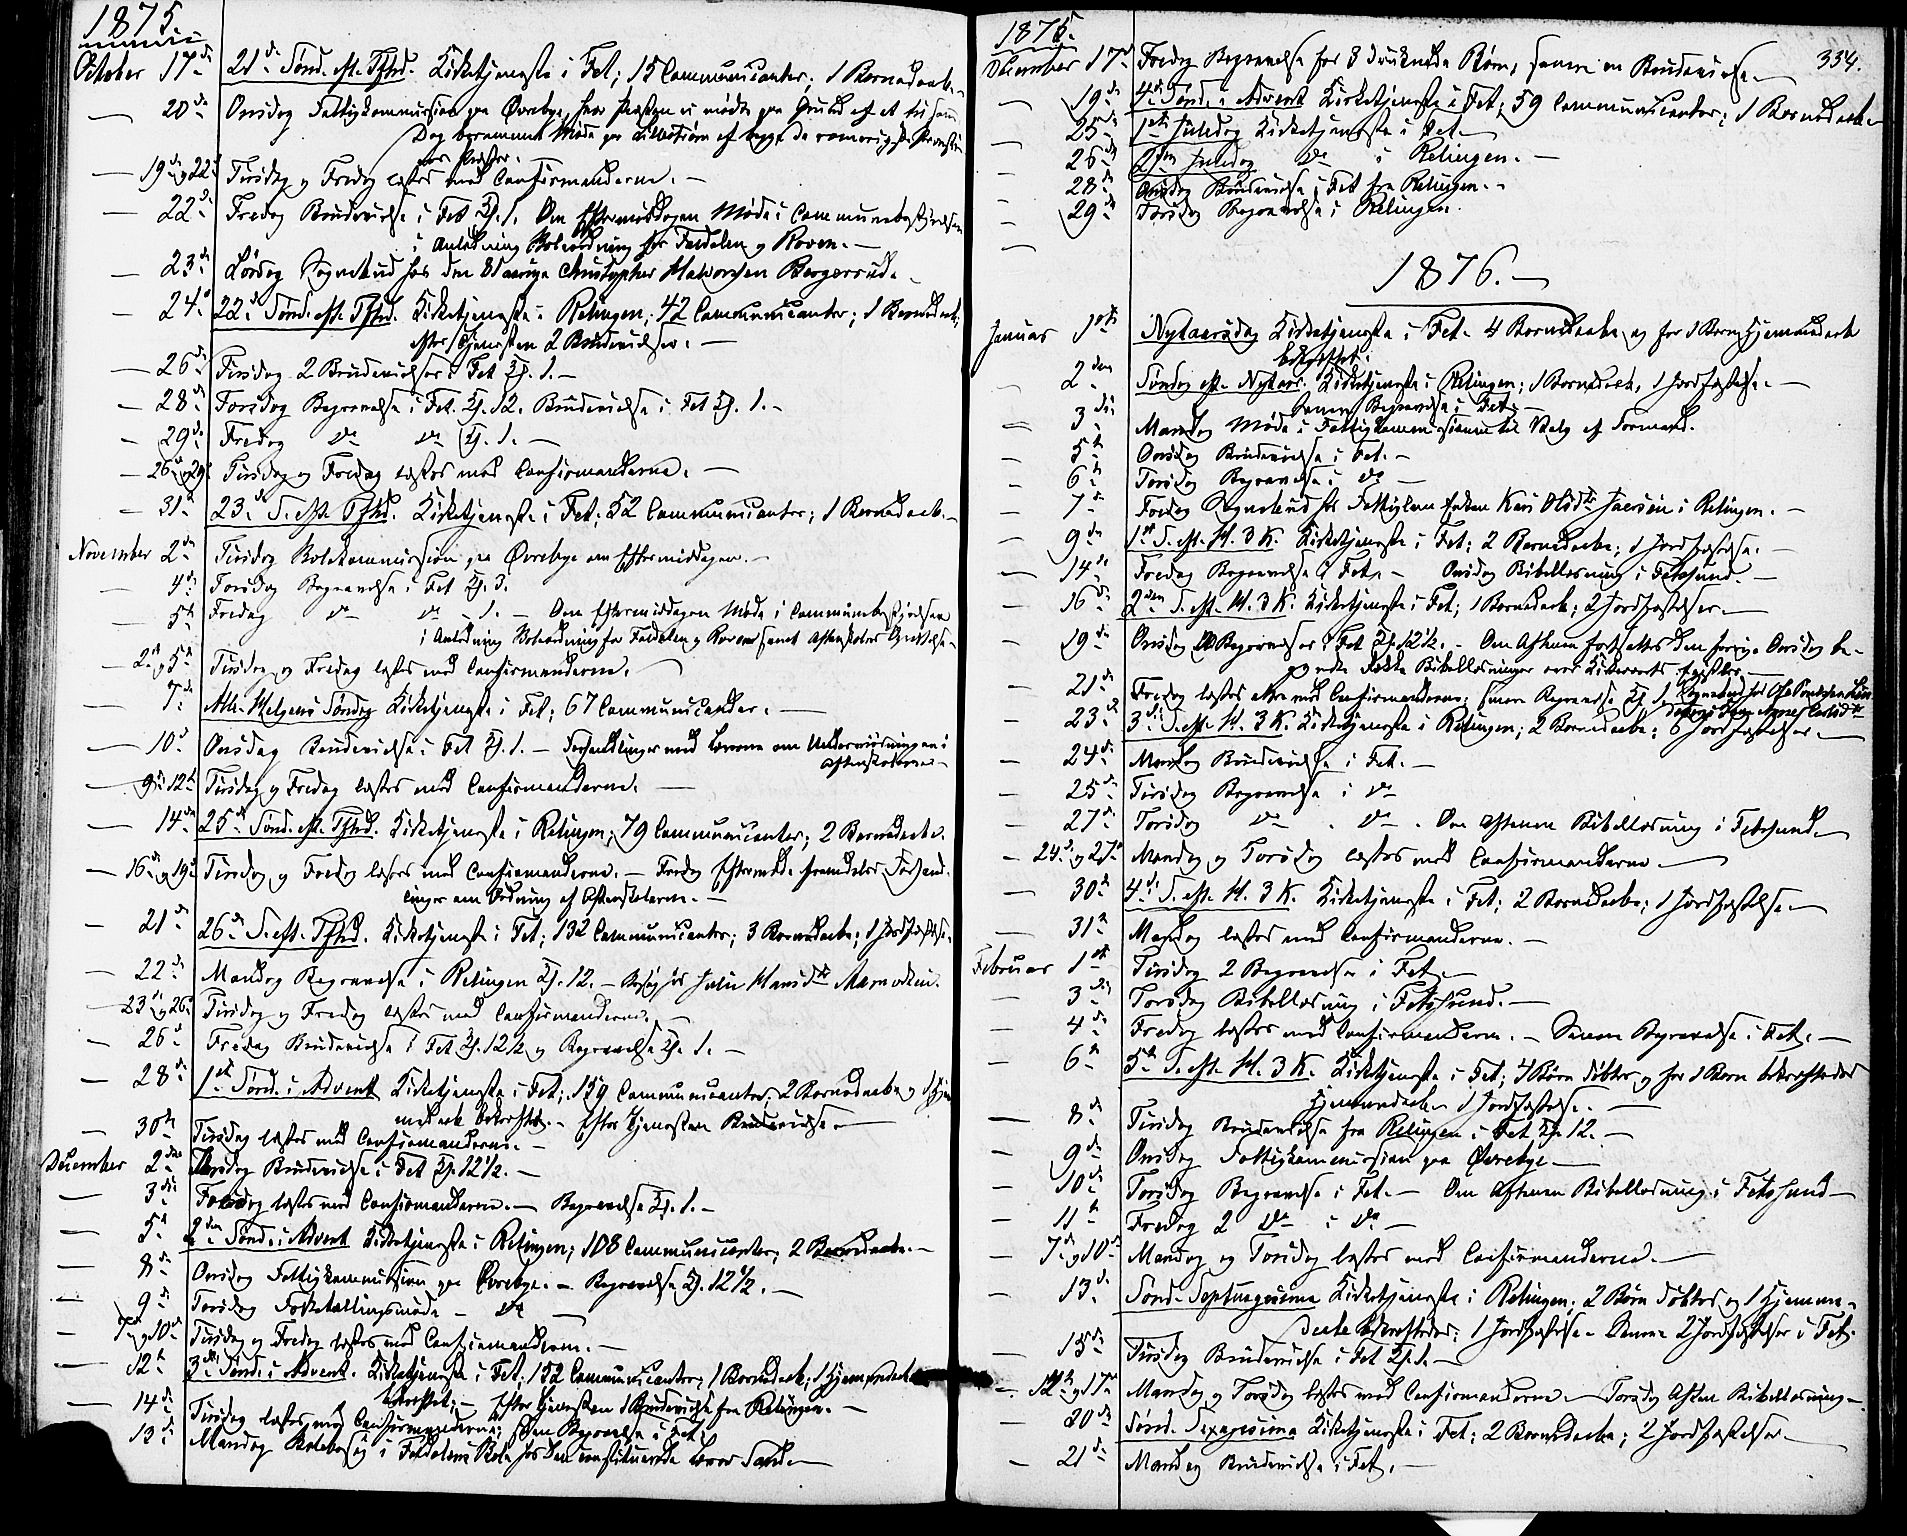 1875
October 17de 21de Sønd. eft. Tfhd. Kirketjeneste i Fet; 15 Communicanter; 1 Barnedaab.
— 20de Onsdag Fattigkommission paa Øvrebye, hvor Præsten ei mødte paa Grund af et til samme
Dag berammet Møde paa Lillestrøm af begge de romerigske Provstiers
Præster.
— 19de og 22de Tirsdag og Fredag læstes med Confirmanderne. —
— 22de Fredag Brudevielse i Fet Kl. 1. Om Eftermiddagen Møde i Communebestyrelsen
i Anledning Veiordning for Faldalen og Roven. —
— 23de Lørdag Sognebud hos den 81 aarige Christopher Halvorsen Bergerud.
— 24de 22de Sønd. eft. Tfhd. Kirketjeneste i Relingen; 42 Communicanter; 1 Barnedaab;
efter Tjenesten 2 Brudevielser. —
— 26de Tirsdag 2 Brudevielser i Fet Kl. 1. —
— 28de Torsdag Begravelse i Fet Kl. 12. Brudevielse i Fet Kl. 1. —
— 29de Fredag do do Kl. 1. —
— 26de og 29de Tirsdag og Fredag læstes med Confirmanderne. —
— 31te 23de S. eft. Tfhd. Kirketjeneste i Fet; 52 Communicanter; 1 Barnedaab. —
November 2den Tirsdag Skolekommission paa Øvrebye om Eftermiddagen. —
— 4de Torsdag Begravelse i Fet Kl. 3.
— 5te Fredag do do 1. — Om Eftermiddagen Møde i Communebestyrelsen
i Anledning Veiordning for Faldalen og Roven samt Aftenskolers Oprettelse. —
— 2den og 5te Tirsdag og Fredag læstes med Confirmanderne. —
— 7de Alle Helgens Søndag Kirketjeneste i Fet; 67 Communicanter. —
— 10de Onsdag Brudevielse i Fet Kl. 1. — Forhandlinger med Lærerne om Undervisningen i
Aftenskolerne. —
— 9de og 12te Tirsdag og Fredag læstes med Confirmanderne. —
— 14de 25de Sønd. eft. Tfhd. Kirketjeneste i Relingen; 79 Communicanter; 2 Barnedaabe.
— 16de og 19de Tirsdag og Fredag læstes med Confirmanderne. — Fredag Efterm. fremdeles Forhand-
linger om Ordning af Aftenskolerne. —
— 21de 26de S. eft. Tfhd. Kirketjeneste i Fet; 132 Communicanter; 3 Barnedaabe; 1 Jordfæstelse.
— 22de Mandag Begravelse i Relingen Kl. 12. — Besøg hos Julie Hansdtr
— 23de og 26de Tirsdag og Fredag læstes med Confirmanderne. —
— 26de Fredag Brudevielse i Fet Kl. 12½ og Begravelse Kl. 1. —
— 28de 1ste Sønd. i Advent Kirketjeneste i Fet; 159 Communicanter. 2 Barnedaabe og 1 Hjem-
medaab bekræftet. — Efter Tjenesten Brudevielse. —
— 30te Tirsdag læstes med Confirmanderne. —
December 2den Torsdag Brudevielse i Fet Kl. 12½. —
— 3die Fredag læstes med Confirmanderne. — Begravelse Kl. 1. —
— 5te 2den Sønd. i Advent Kirketjeneste i Relingen; 108 Communicanter; 2 Barnedaabe. —
— 8de Onsdag Fattigkommission paa Øvrebye. — Begravelse Kl. 12½. —
— 9de Torsdag Folketællingsmøde — do —
— 7de og 10de Tirsdag og Fredag læstes med Confirmanderne. —
— 12te 3die Sønd. i Advent. Kirketjeneste i Fet. 152 Communicanter; 1 Barnedaab; 1 Hjemmedaab
bekræftet; — Efter Tjenesten 1 Brudevielse fra Relingen. —
— 14de Tirsdag læstes med Confirmanderne; samme Begravelse i Fet.
13de Mandag Skolebesøg i Faldalens Skole hos den constituerede Lærer Sand. —
1875. 334.
December 17de Fredag Begravelse for 3 druknede Børn, samme en Brudevielse. —
— 19de 4de Sønd. i Advent Kirketjeneste i Fet; 59 Communicanter; 1 Barnedaab. —
— 25de 1ste Juledag Kirketjeneste i Fet. —
— 26de 2den Juledag do i Relingen. —
— 28de Tirsdag Brudevielse i Fet fra Relingen. —
— 29de Onsdag Begravelse i Relingen.
1876. —
Januar 1ste Nytaarsdag Kirketjeneste i Fet. 4 Barnedaabe og for 1 Barn Hjemmedaab
bekræftet.
— 2den Søndag eft. Nytaar. Kirketjeneste i Relingen; 1 Barnedaab, 1 Jordfæstelse. —
samme Begravelse i Fet. —
— 3die Mandag Møde i Fattigkommissionen til Valg af Formand.
— 5te Onsdag Brudevielse i Fet. —
— 6te Torsdag Begravelse i do —
— 7de Fredag Sognebud hos Fattiglem Enken Kari Olsdtr i Relingen. —
— 9de 1ste S. eft. H. 3 K. Kirketjeneste i Fet; 2 Barnedaabe; 1 Jordfæstelse. —
— 14de Fredag Begravelse i Fet. — Onsdag Bibellæsning i Fetsund. —
— 16de 2den S. eft. H. 3 K. Kirketjeneste i Fet; 1 Barnedaab; 2 Jordfæstelser. —
— 19de Onsdag Begravelser i Fet Kl. 12½. — Om Aftenen fortsattes den forrige Onsdag be-
gyndte Række Bibellæsninger over Kirkeaarets Epistler.
— 21de Fredag læstes med Confirmanderne; samme Begravelse Kl. 1. Sognebud hos
— 23de 3die S. eft. H. 3 K. Kirketjeneste i Relingen; 2 Barnedaabe; 6 Jordfæstelser. —
— 24de Mandag Brudevielse i Fet. —
— 25de Tirsdag Begravelse i do
— 27de Torsdag do . do . Om Aftenen Bibellæsning i Fetsund. —
— 24de og 27de Mandag og Torsdag læstes med Confirmanderne. —
— 30te 4de S. eft. H. 3 K. Kirketjeneste i Fet; 2 Barnedaabe; 1 Jordfæstelse. —
— 31te Mandag læstes med Confirmanderne. —
Februar 1ste Tirsdag 2 Begravelser i Fet. —
— 3die Torsdag Bibellæsning i Fetsund. —
— 4de Fredag læstes med Confirmanderne. — Samme Begravelse i Fet. —
— 6te 5te S. eft. H. 3 K. Kirketjeneste i Fet; 4 Børn døbte og for 1 Barn bekræftedes
Hjemmedaab. 1 Jordfæstelse. —
— 8de Tirsdag Brudevielse fra Relingen i Fet Kl. 12. —
— 9de Onsdag Fattigkommission paa Øvrebye —
— 10de Torsdag Begravelse i Fet. — Om Aftenen Bibellæsning i Fetsund —
— 11te Fredag 2 do i do —
— 7de og 10de Mandag og Torsdag læstes med Confirmanderne. —
— 13de Sønd. Septuagesima Kirketjeneste i Relingen; 2 Børn døbtes og 1 Hjemme-
daab bekræftedes; 1 Jordfæstelse. Samme 2 Jordfæstelser i Fet.
— 15de Tirsdag Brudevielse i Fet Kl. 1. —
— 14de og 17de Mandag og Torsdag læstes med Confirmanderne — Torsdag Aften Bibellæsning —
— 20de Sønd. Sexagesima Kirketjeneste i Fet; 2 Barnedaabe; 2 Jordfæstelser —
— 21de Mandag Brudevielse i Fet. —